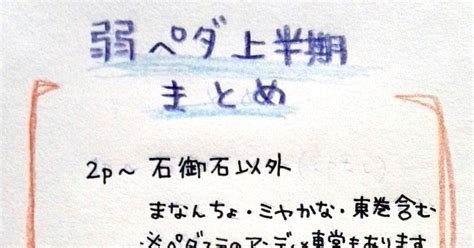 弱ペダ上半期
まとめ
2p〜 石御石以外
まなんちょ・ミヤかな・東巻含む
※ペダステのアンディ×東堂もあります